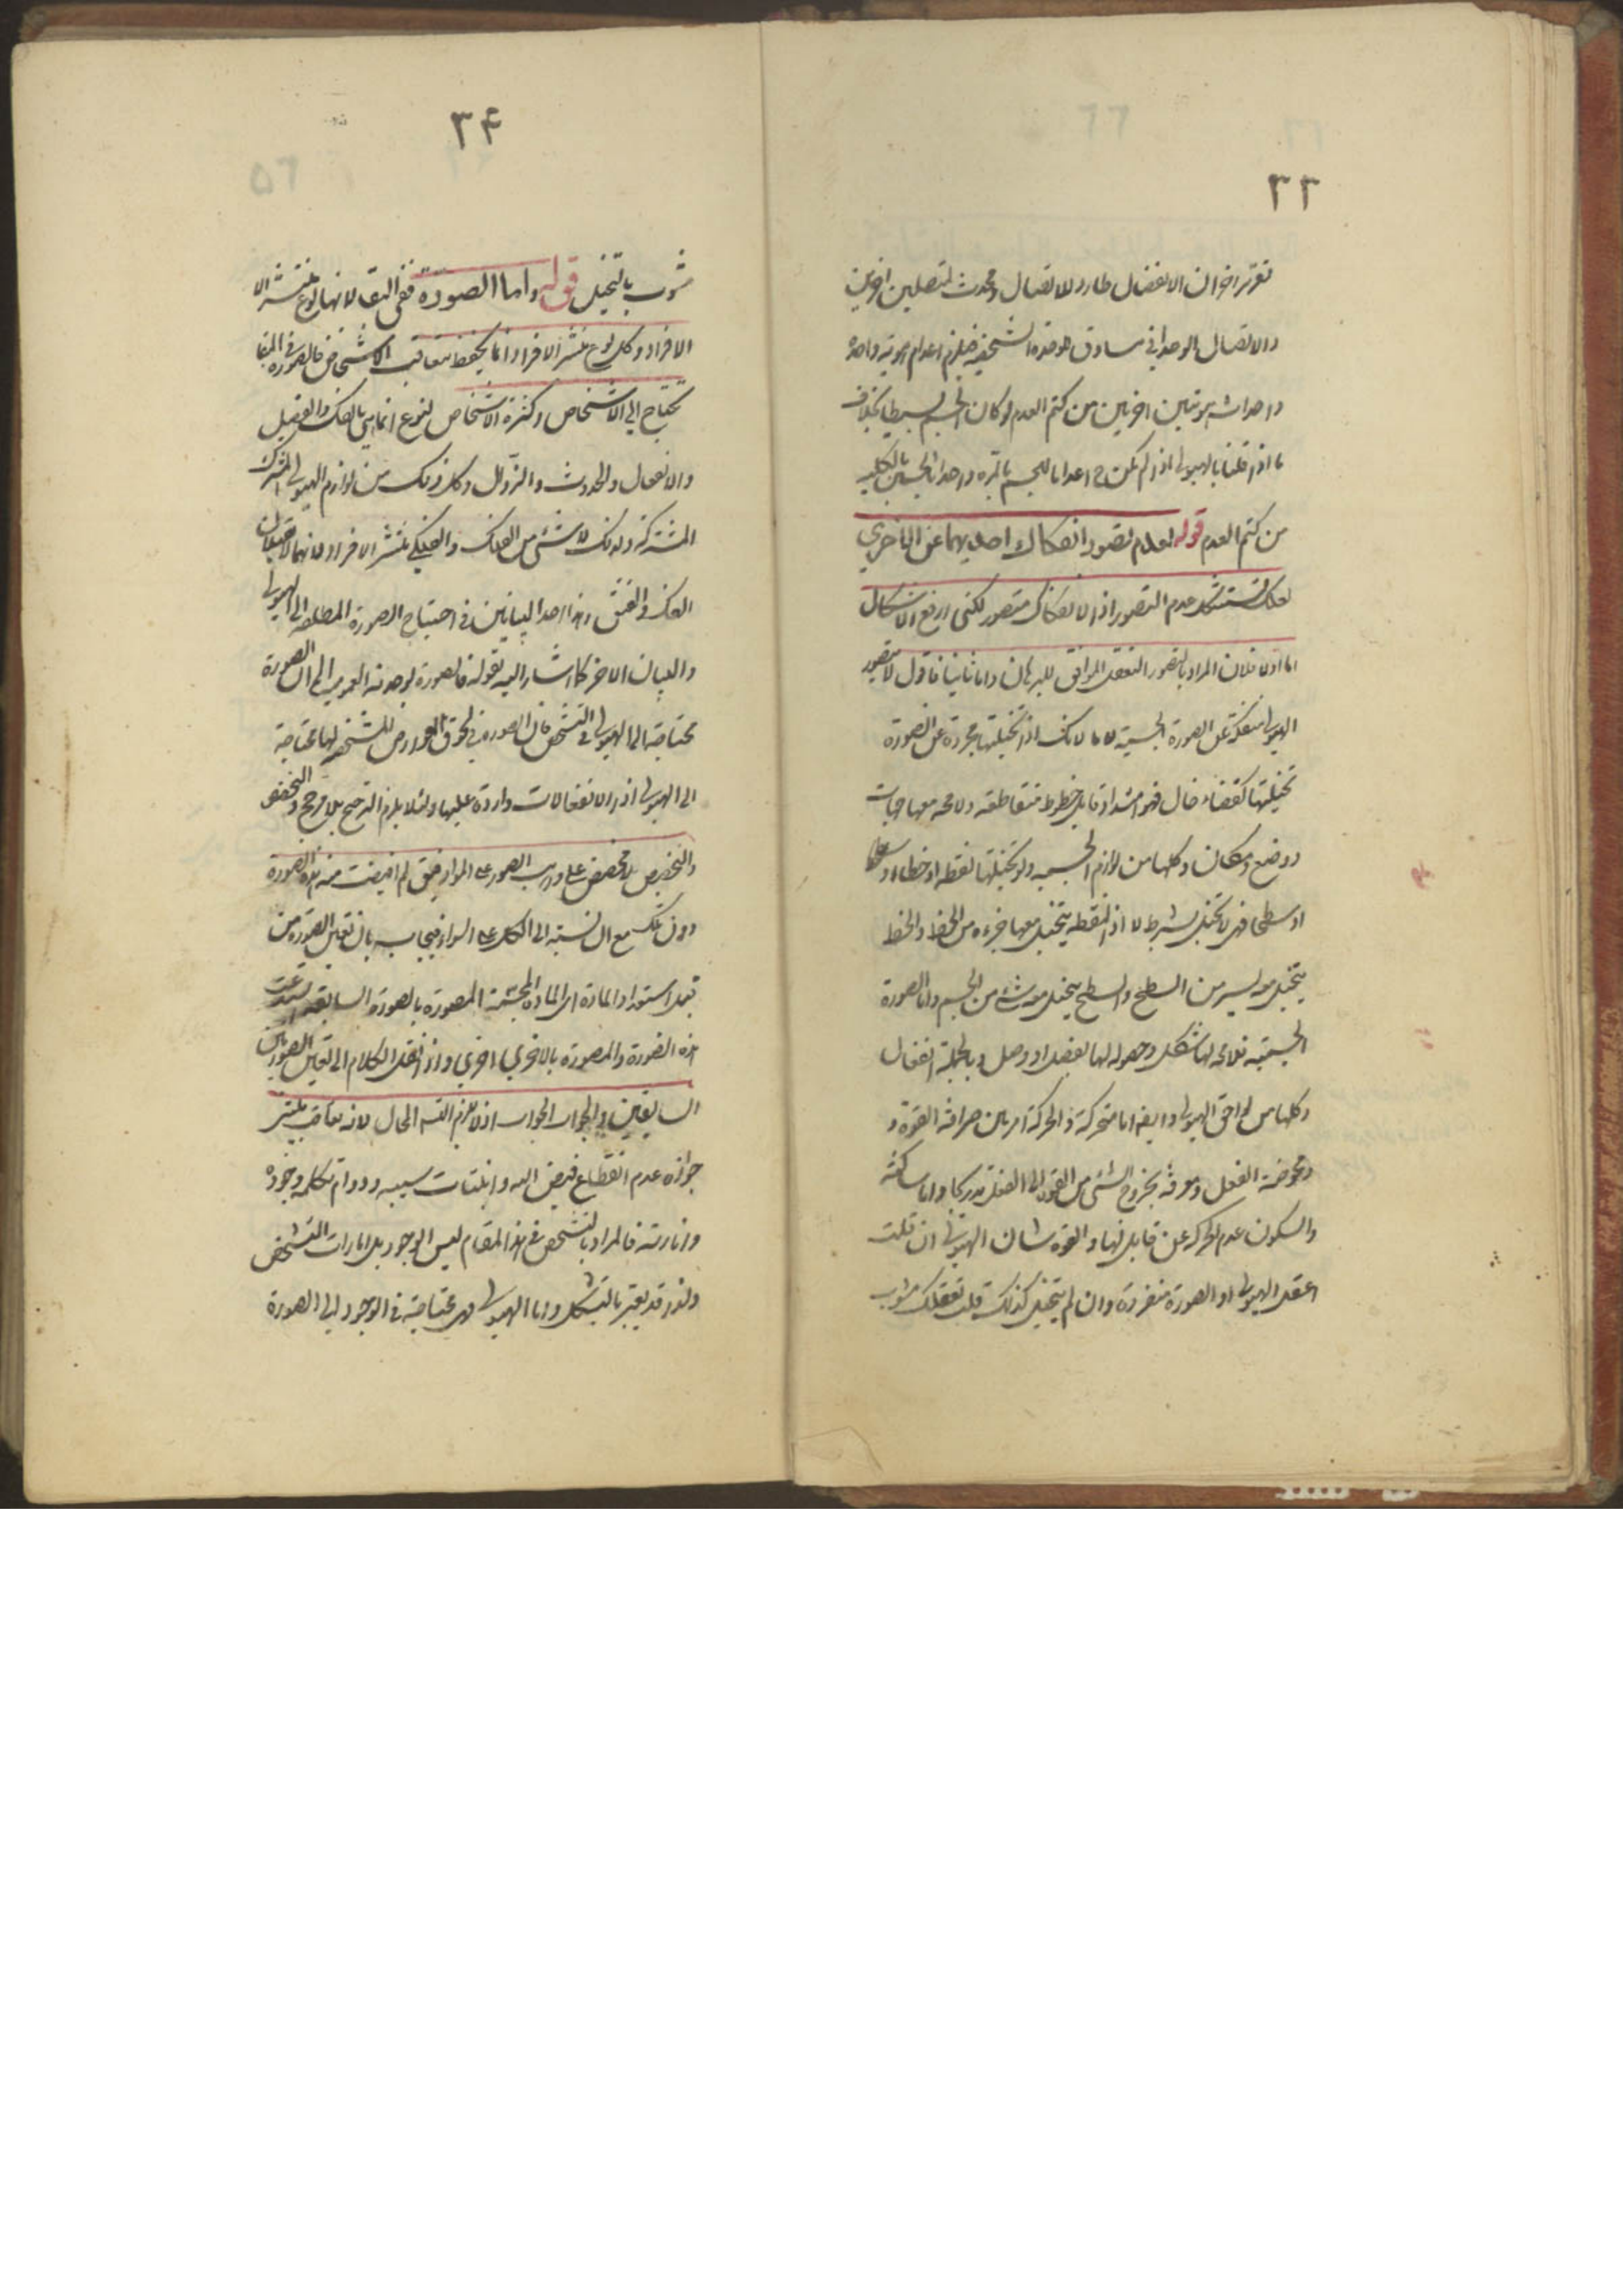 ٣٣
تقرير اخر ان الانفصال طارد للاتصال ومحدث لمتصلين اخرين
والاتصال الوحداني مساوق للوحدة الشخصية فيلزم اعدام هوية واحدة
واحداث هويتين اخريين من كتم العدم لو كان الجسم بسيطا بخلاف
ما اذا قلنا بالهيولى اذ لم يكن ح اعداما للجسم بالمرة واحداث الجسمين بالكلية
من كتم العدم قوله لعدم تصور انفكاك احديهما عن الاخرى
لعلك تستشكل عدم التصور اذ الانفكاك متصور لكنى ارفع الاشكال
اما اولا فلان المراد بالتصور التعقل الموافق للبرهان واما ثانيا فاقول لا يتصور
الهيولى منفكة عن الصورة الجسمية لانك اذا تخيلتها مجردة عن الصورة
تخيلتها كفضاء خال فهو امتداد قابل خطوط متقاطعة ولا محة معها جهات
ووضع ومكان وكلها من لوازم الجسمية ولو تخيلتها نقطة او خطا او سطحا
او سطحا فهى لا تتخيل بشرط لا اذ النقطة يتخيل معها جزء من الخط والخط
يتخيل معه يسير من السطح والسطح يتخيل معه شىء من الجسم واما الصورة
الجسمية فلا محة لها شكل وحصوله لها بفصل او وصل وبالجملة انفعال
وكلها من لواحق الهيولى وايضا اما متحركة والحركة امر بين صرافة القوة و
ومحوضة الفعل ومعرفة بخروج الشىء من القوة الى الفعل تدريجا واما ساكنة
والسكون عدم الحركة عن قابل لها والقوة شان الهيولى ان قلت
اعقل الهيولى او الصورة منفردة وان لم يتخيل كذلك قلت تعقلك مشوب
٣۴
مشوب بالتخيل قوله واما الصورة ففى البقاء لانها نوع منتشر الا
الافراد وكل نوع منتشر الافراد انما يحفظ بتعاقب الاشخاص فالصورة فى البقا
تحتاج الى الاشخاص وكثرة الاشخاص لنوع انما هى بالفك والفصل
والانفعال والحدوث والزوال وكل ذلك من لوازم الهيولى المشتركة
المشتركة ولذلك لا شىء من الفلك والفلكى منتشر الافراد لانهما لا يقبلان
الفك والفتق وهذا احد البيانين فى احتياج الصورة المطلقة الى الهيولى
والبيان الاخر كما اشار اليه بقوله فالصورة بوحدته العمومية الى الصورة
محتاجة الى الهيولى فى التشخص فان الصورة فى لحوق العوارض المشخصة لها محتاجة
الى الهيولى اذ الانفعالات واردة عليها ولئلا يلزم الترجيح بلا مرجح والتخصص
والتخصيص بلا مخصص على واهب الصور على المواد حتى لم افيضت منه هذه الصورة
دون تلك مع ان نسبته الى الكل على السواء فيجاب بان تعين الصورة من
قبل استعداد المادة اى المادة المجسمة المصورة بالصورة السابقة استدعت
هذه الصورة والمصورة بالاخرى اخرى واذا نقل الكلام الى تعين الصورتين
السابقتين فالجواب الجواب اذ لا يلزم التسه المحال لانه تعاقب يبتنى
جوازه عدم انقطاع فيض الله وانبتات سيبه ودوام تكلمه وجوده
وانارته فالمراد بالتشخص فى هذا المقام ليس الوجود بل امارات التشخص
ولذا قد يعبر بالتشكل واما الهيولى فهى محتاجة فى الوجود الى الصورة